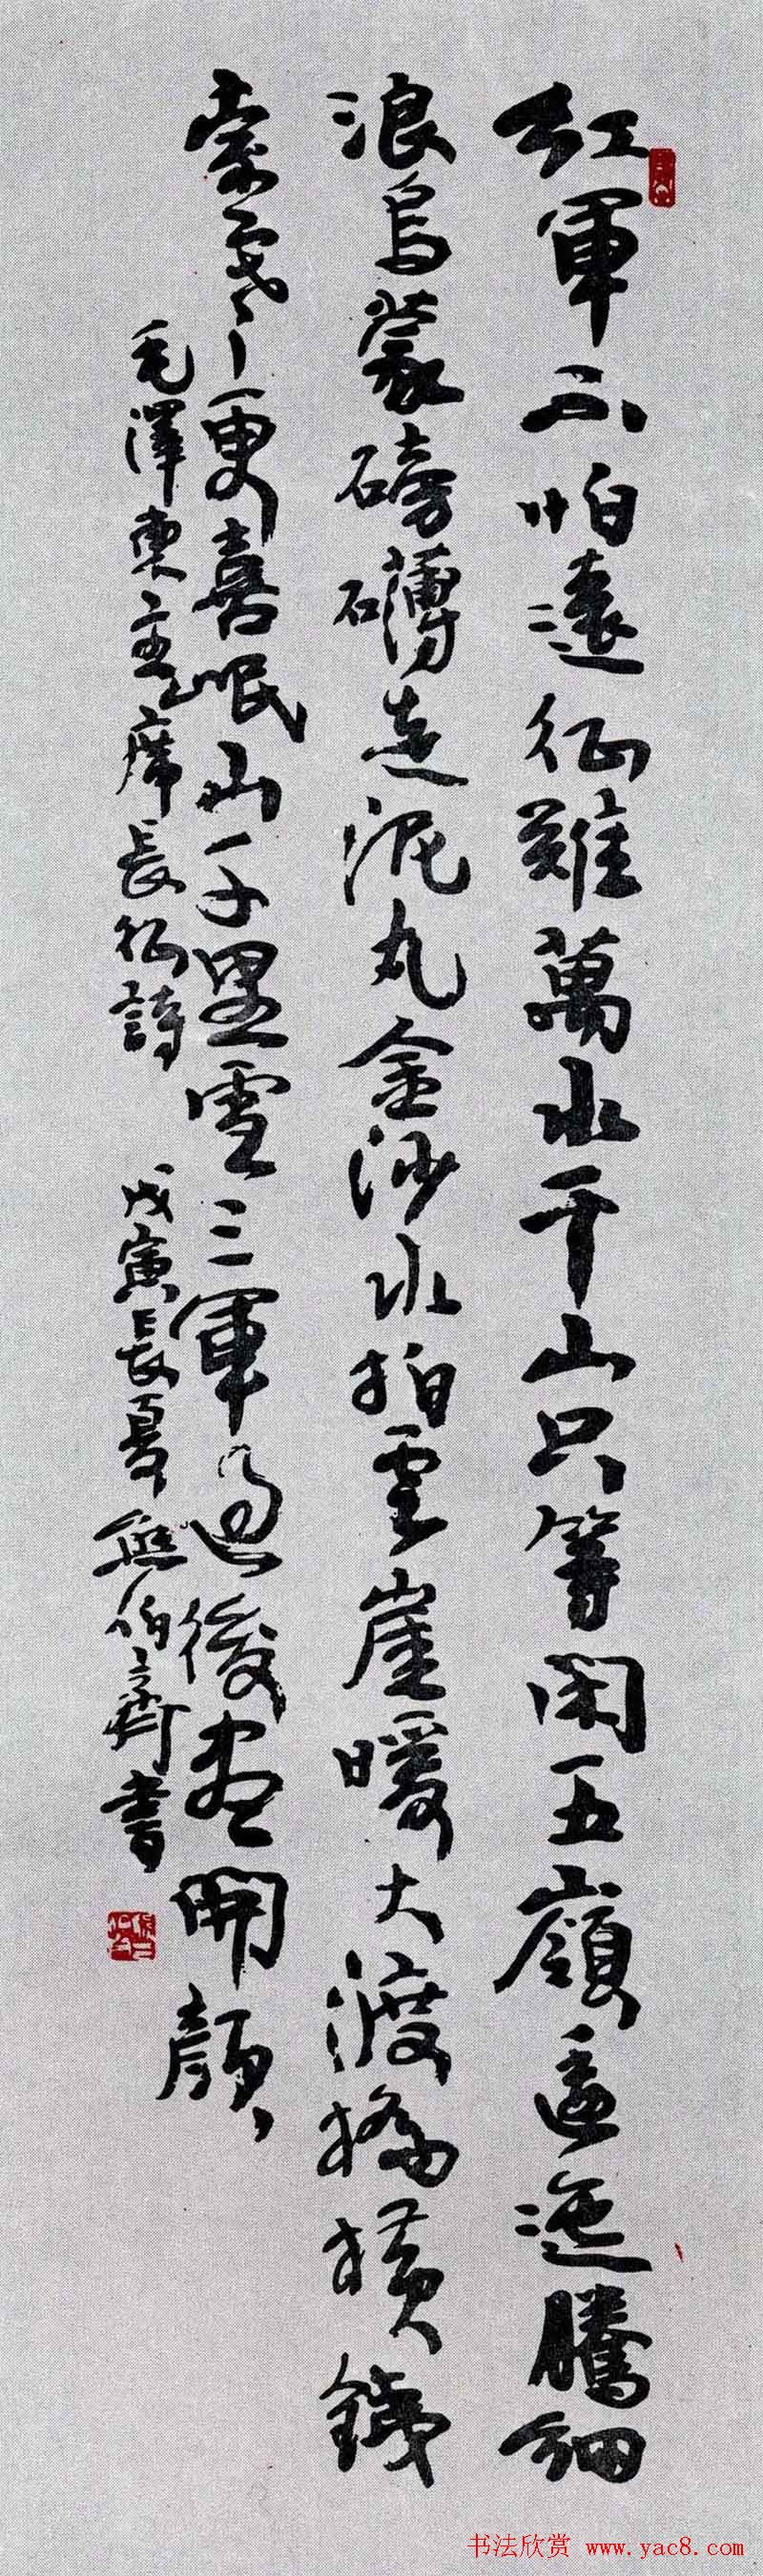 紅軍不怕遠征難萬水千山只等閑五嶺逶迤騰細
浪烏蒙磅礴走泥丸金沙水拍雲崖暖大渡橋橫鐵
索寒更喜岷山千里雪三軍過後盡開顏
毛澤東主席長征詩 戊寅長夏熊伯齊書
书法欣赏 www.yac8.com